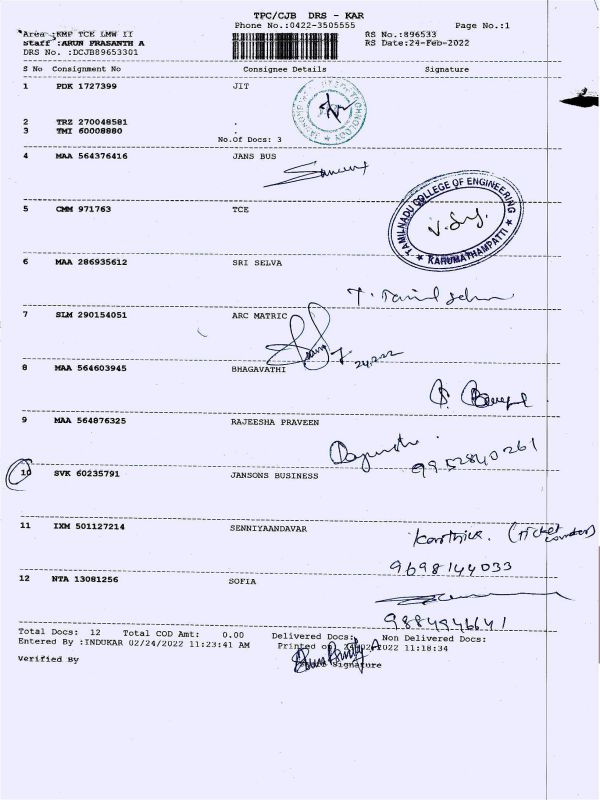 TPC/CJB DRS - KAR
Phone No.:0422-3505555 Page No.:1
Area :KMP TCE LMW II RS No.:896533
Staff :ARUN PRASANTH A RS Date:24-Feb-2022
DRS No. :DCJB89653301
S No Consignment No Consignee Details Signature
1 PDK 1727399 JIT
2 TRZ 270048581 .
3 TMI 60008880 .
No.Of Docs: 3
4 MAA 564376416 JANS BUS
5 CMM 971763 TCE
TAMILNADU COLLEGE OF ENGINEERING
KARUMATHAMPATTI
6 MAA 286935612 SRI SELVA
7 SLM 290154051 ARC MATRIC
8 MAA 564603945 BHAGAVATHI
9 MAA 564876325 RAJEESHA PRAVEEN
9952840261
10 SVK 60235791 JANSONS BUSINESS
11 IXM 501127214 SENNIYAANDAVAR
Karthick. (Ticket counter)
9698144033
12 NTA 13081256 SOFIA
9884946641
Total Docs: 12 Total COD Amt: 0.00 Delivered Docs: Non Delivered Docs:
Entered By :INDUKAR 02/24/2022 11:23:41 AM Printed on 24/02/2022 11:18:34
Verified By Signature